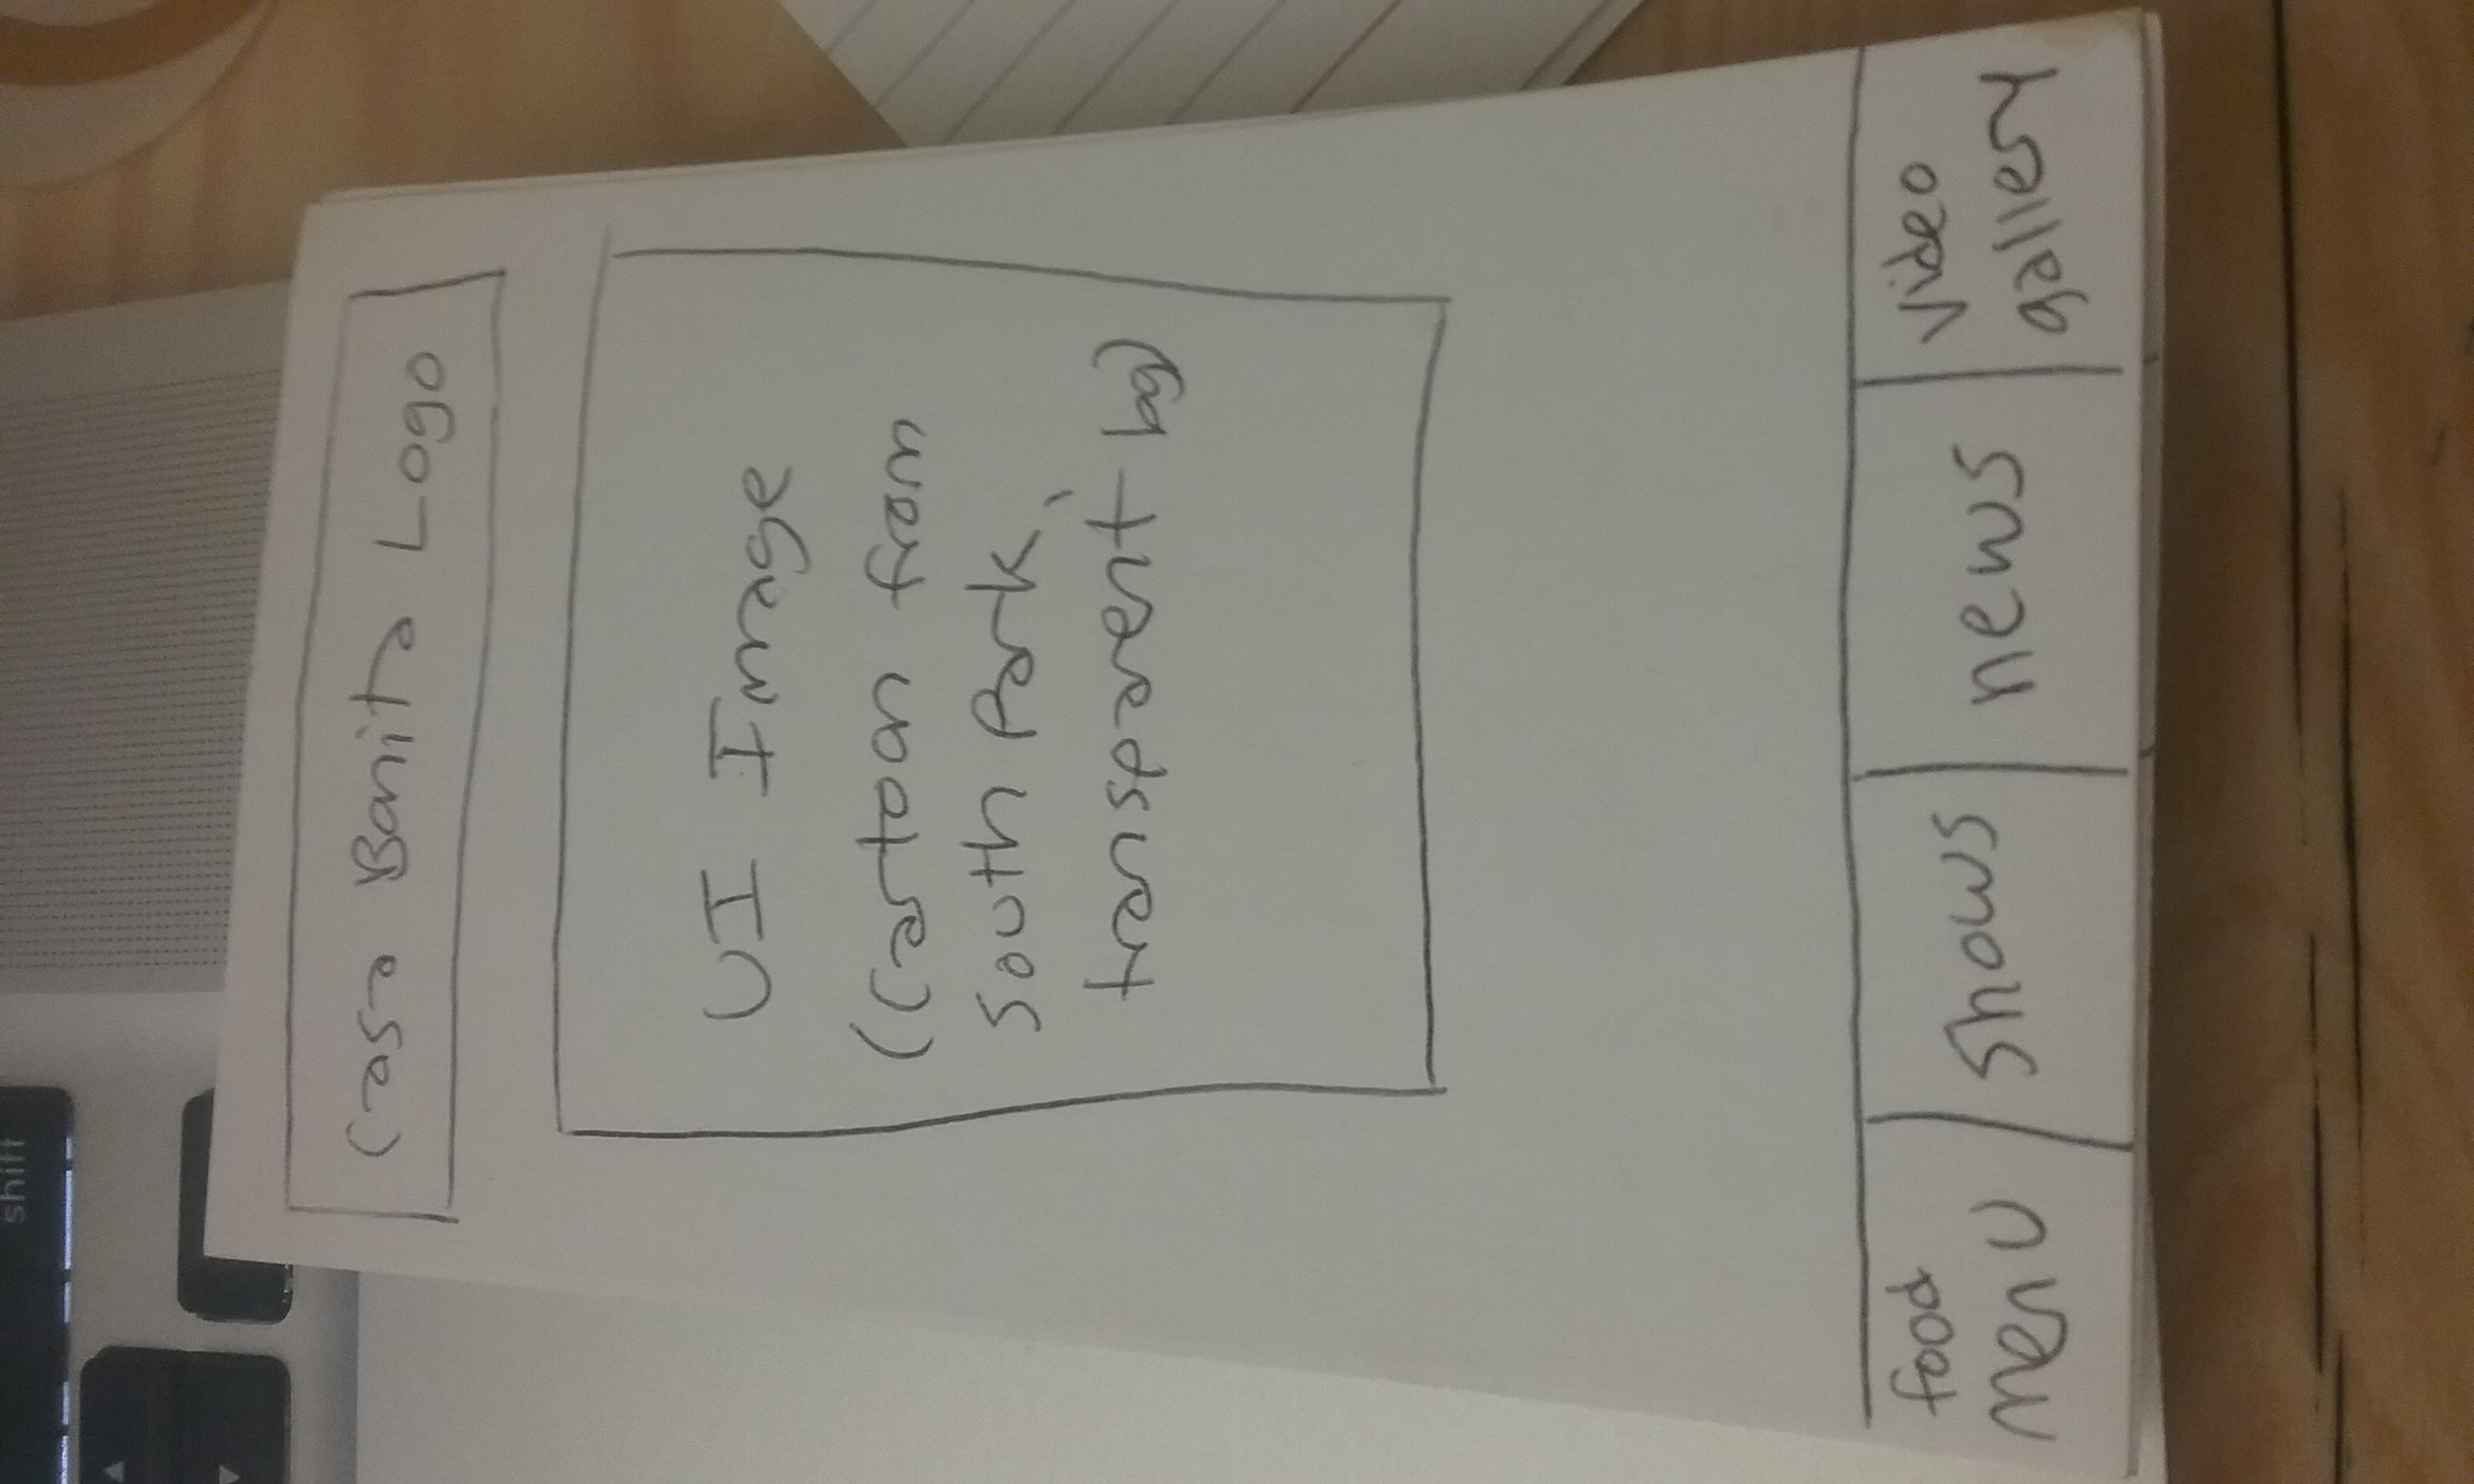 shift
Casa Bonita Logo
UI Image
(Cartoon from
South Park,
transparent bg)
food
menu
shows
news
video
gallery